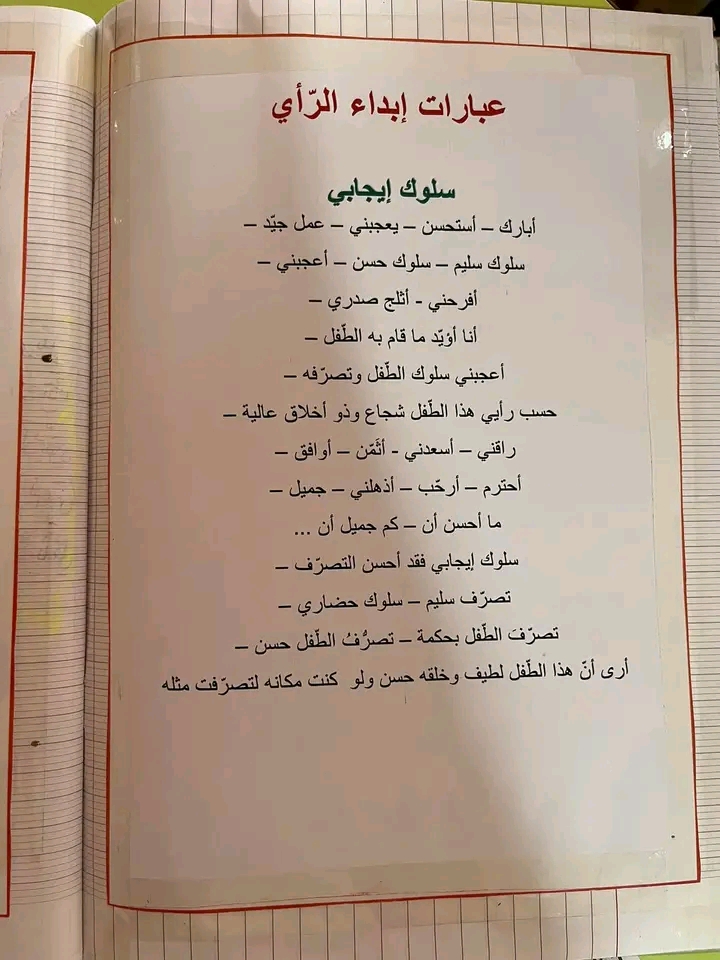 عبارات إبداء الرّأي
سلوك إيجابي
أبارك – أستحسن – يعجبني – عمل جيّد –
سلوك سليم – سلوك حسن – أعجبني –
أفرحني - أثلج صدري –
أنا أؤيّد ما قام به الطّفل –
أعجبني سلوك الطّفل وتصرّفه –
حسب رأيي هذا الطّفل شجاع وذو أخلاق عالية –
راقني – أسعدني - أثَمّن – أوافق –
أحترم – أرحّب – أذهلني – جميل –
ما أحسن أن – كم جميل أن ...
سلوك إيجابي فقد أحسن التصرّف –
تصرّف سليم – سلوك حضاري –
تصرّفَ الطّفل بحكمة – تصرُّفُ الطّفل حسن –
أرى أنّ هذا الطّفل لطيف وخلقه حسن ولو كنت مكانه لتصرّفت مثله